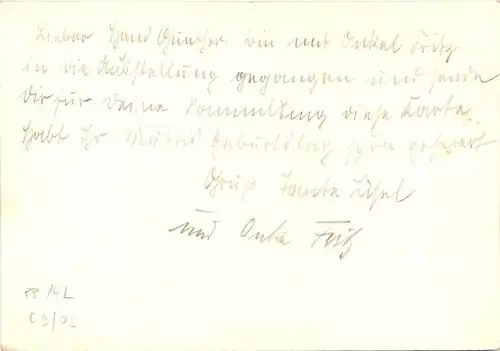 Lieber Hans Günther. bin mit Onkel Fritz
in die Ausstellung gegangen und sende
dir für deine Sammlung diese Karte.
Habt Ihr Muttis Geburtstag schön gefeiert
Gruß Tante Lisel
und Onkel Fritz